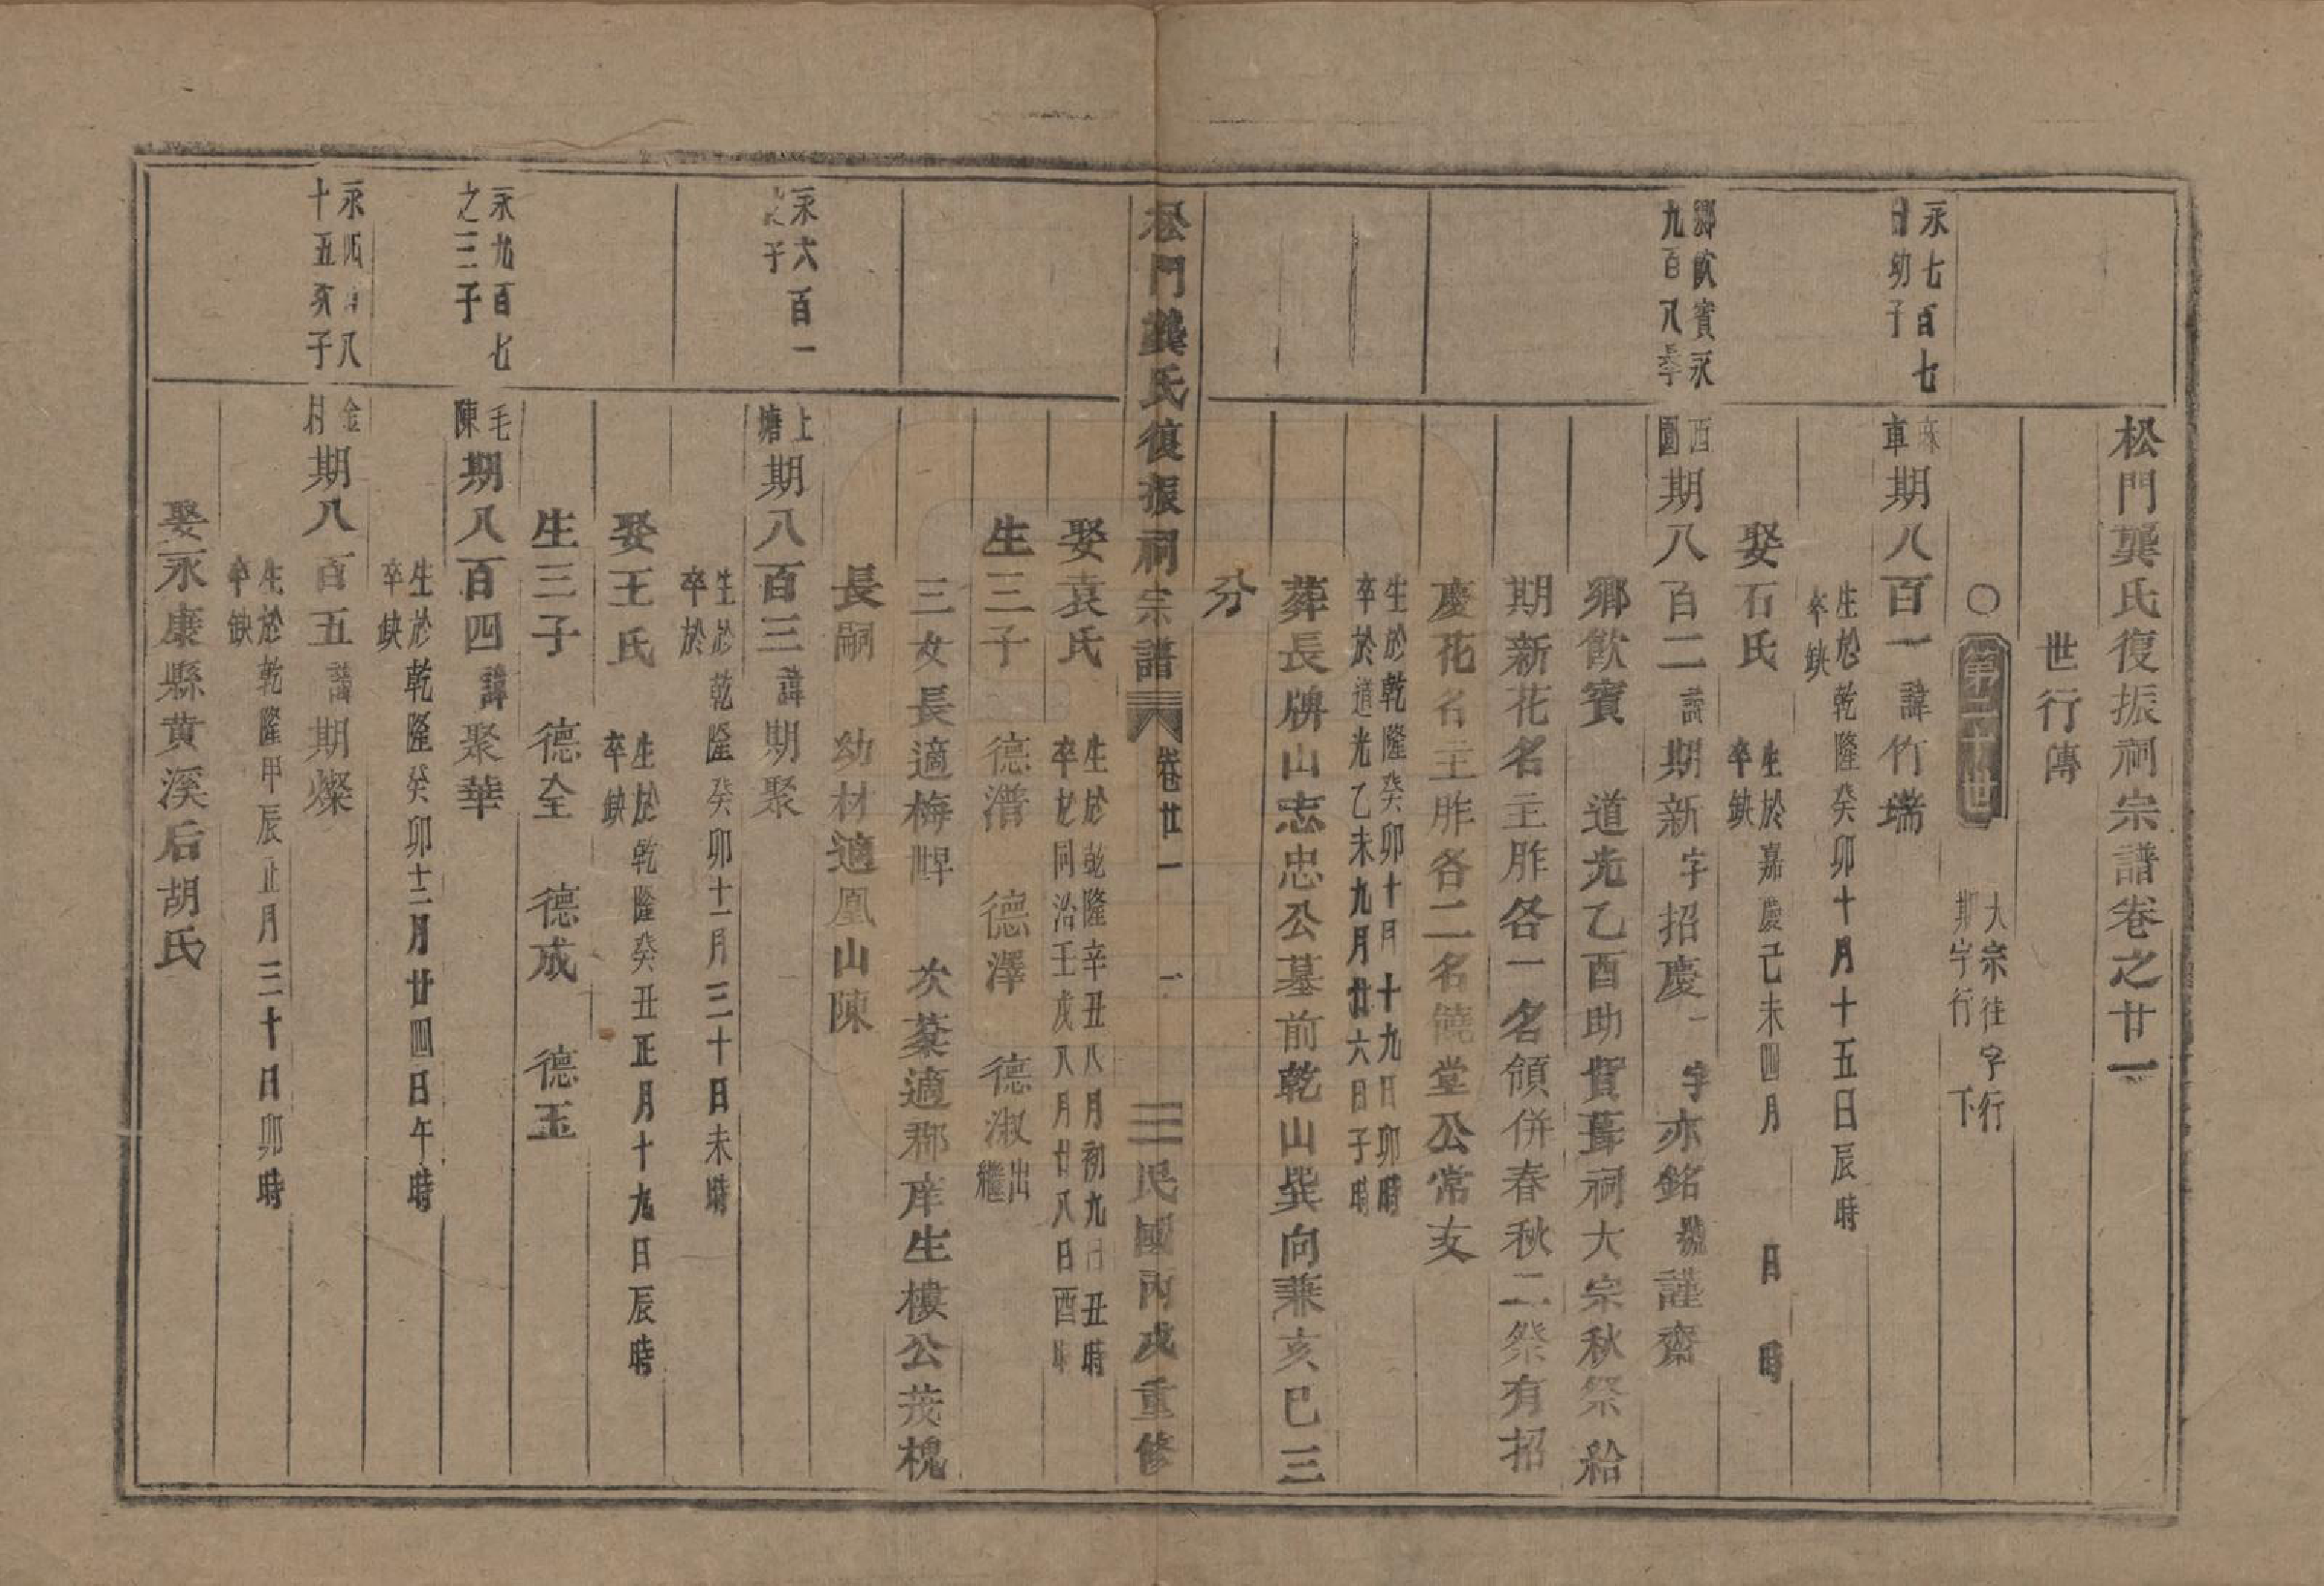 松門龔氏復振祠宗譜卷之廿一
世行傳
〇 第二十世 大宗往字行下
期字行
永七百七
幼子
車 期八百一 諱竹端
生於乾隆癸卯十月十五日辰時
卒缺
娶石氏 生於嘉慶己未四月 日 時
卒缺
鄉飲賓永
九百八長子
西園 期八百二 諱期新 字招慶 一字亦銘 號謹齋
鄉飲賓 道光乙酉助貲葺祠大宗秋祭給
期新花名主胙各一名領併春秋二祭有招
慶花名主胙各二名饒堂公常支
生於乾隆癸卯十月十九日卯時
卒於道光乙未九月廿六日子時
葬長牌山志忠公墓前乾山巽向兼亥巳三
分
松門龔氏復振祠宗譜 卷廿一 一 民國丙戌重修
娶袁氏 生於乾隆辛丑八月初九日丑時
卒於同治壬戌八月廿八日酉時
生三子 德潛 德澤 德淑出繼
三女長適梅墅 次棻適郡庠生樓公茂槐
長嗣 幼材適鳳山陳
永六百一
子
上塘 期八百三 諱期聚
生於乾隆癸卯十一月三十日未時
卒於
娶王氏 生於乾隆癸丑正月十九日辰時
卒缺
生三子 德全 德成 德玉
永九百七
之三子
毛陳 期八百四 諱聚華
生於乾隆癸卯十二月廿四日午時
卒缺
永四百八
十五亥子
金村 期八百五 諱期燦
生於乾隆甲辰正月三十日卯時
卒缺
娶永康縣黃溪后胡氏